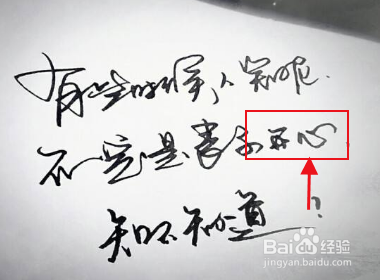 有些时候，人笑呢.
不一定是表示开心
知不知道？
Baidu经验
jingyan.baidu.com